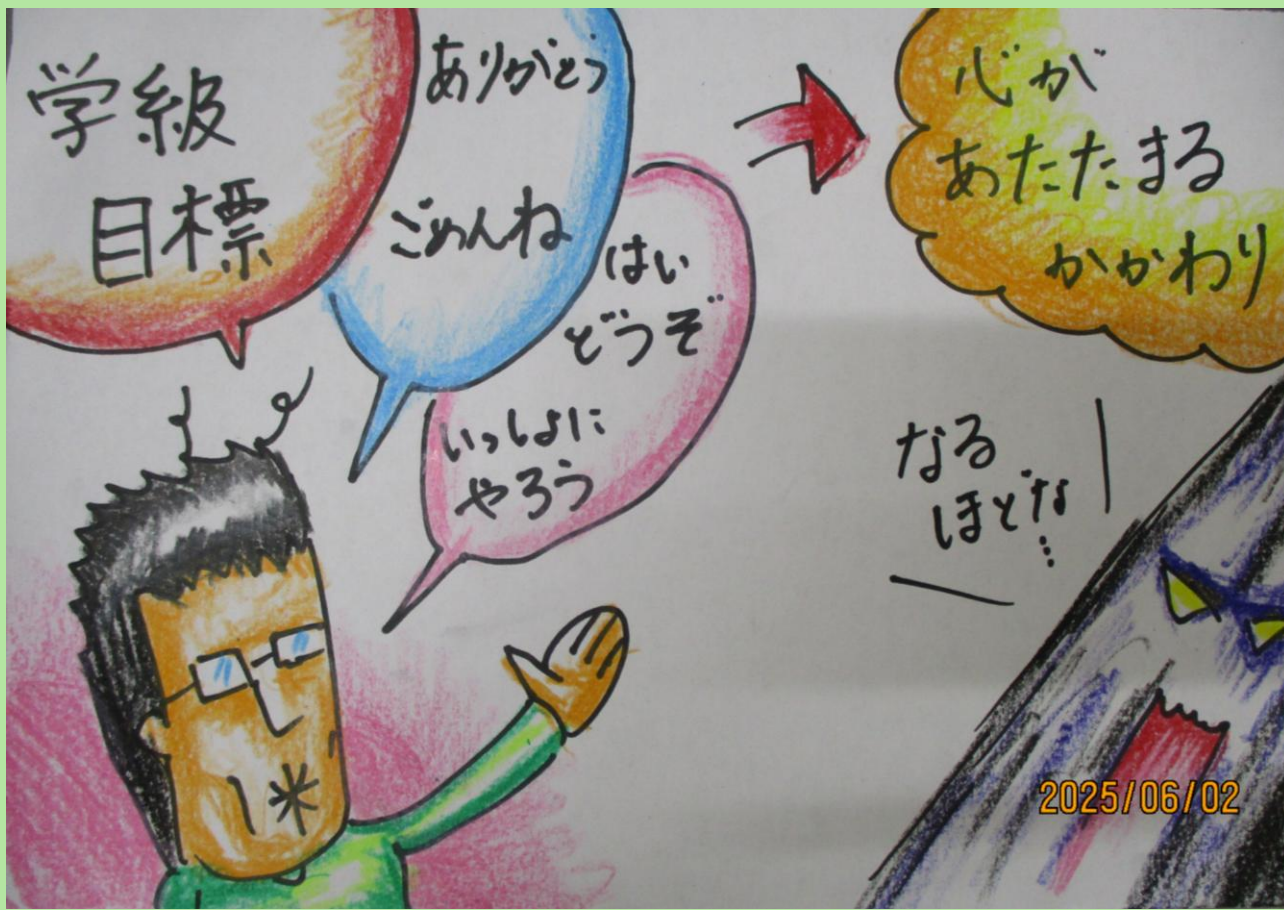 学級
目標
ありがとう
ごめんね
はい
どうぞ
いっしょに
やろう
心が
あたたまる
かかわり
なる
ほどな
…
2025/06/02